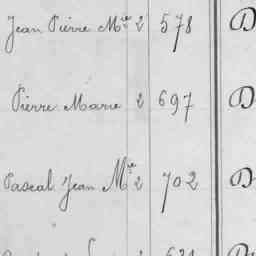 Jean Pierre Mie 2 578 D
Pierre Marie 2 697 D
Pascal Jean Mie 2 702 D